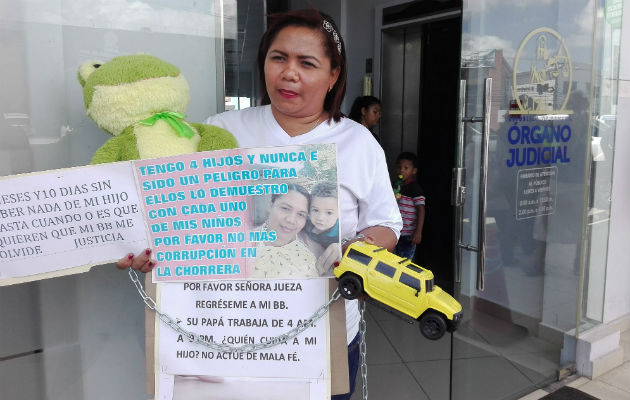 MESES Y 10 DIAS SIN
SABER NADA DE MI HIJO
HASTA CUANDO O ES QUE
QUIEREN QUE MI BB ME
OLVIDE JUSTICIA
TENGO 4 HIJOS Y NUNCA E
SIDO UN PELIGRO PARA
ELLOS LO DEMUESTRO
CON CADA UNO
DE MIS NIÑOS
POR FAVOR NO MAS
CORRUPCION EN
LA CHORRERA
POR FAVOR SEÑORA JUEZA
REGRÉSEME A MI BB.
SU PAPÁ TRABAJA DE 4 AM.
A 9 PM. ¿QUIÉN CUIDA A MI
HIJO? NO ACTÚE DE MALA FÉ.
ÓRGANO
JUDICIAL
HORARIO DE ATENCIÓN
AL PÚBLICO